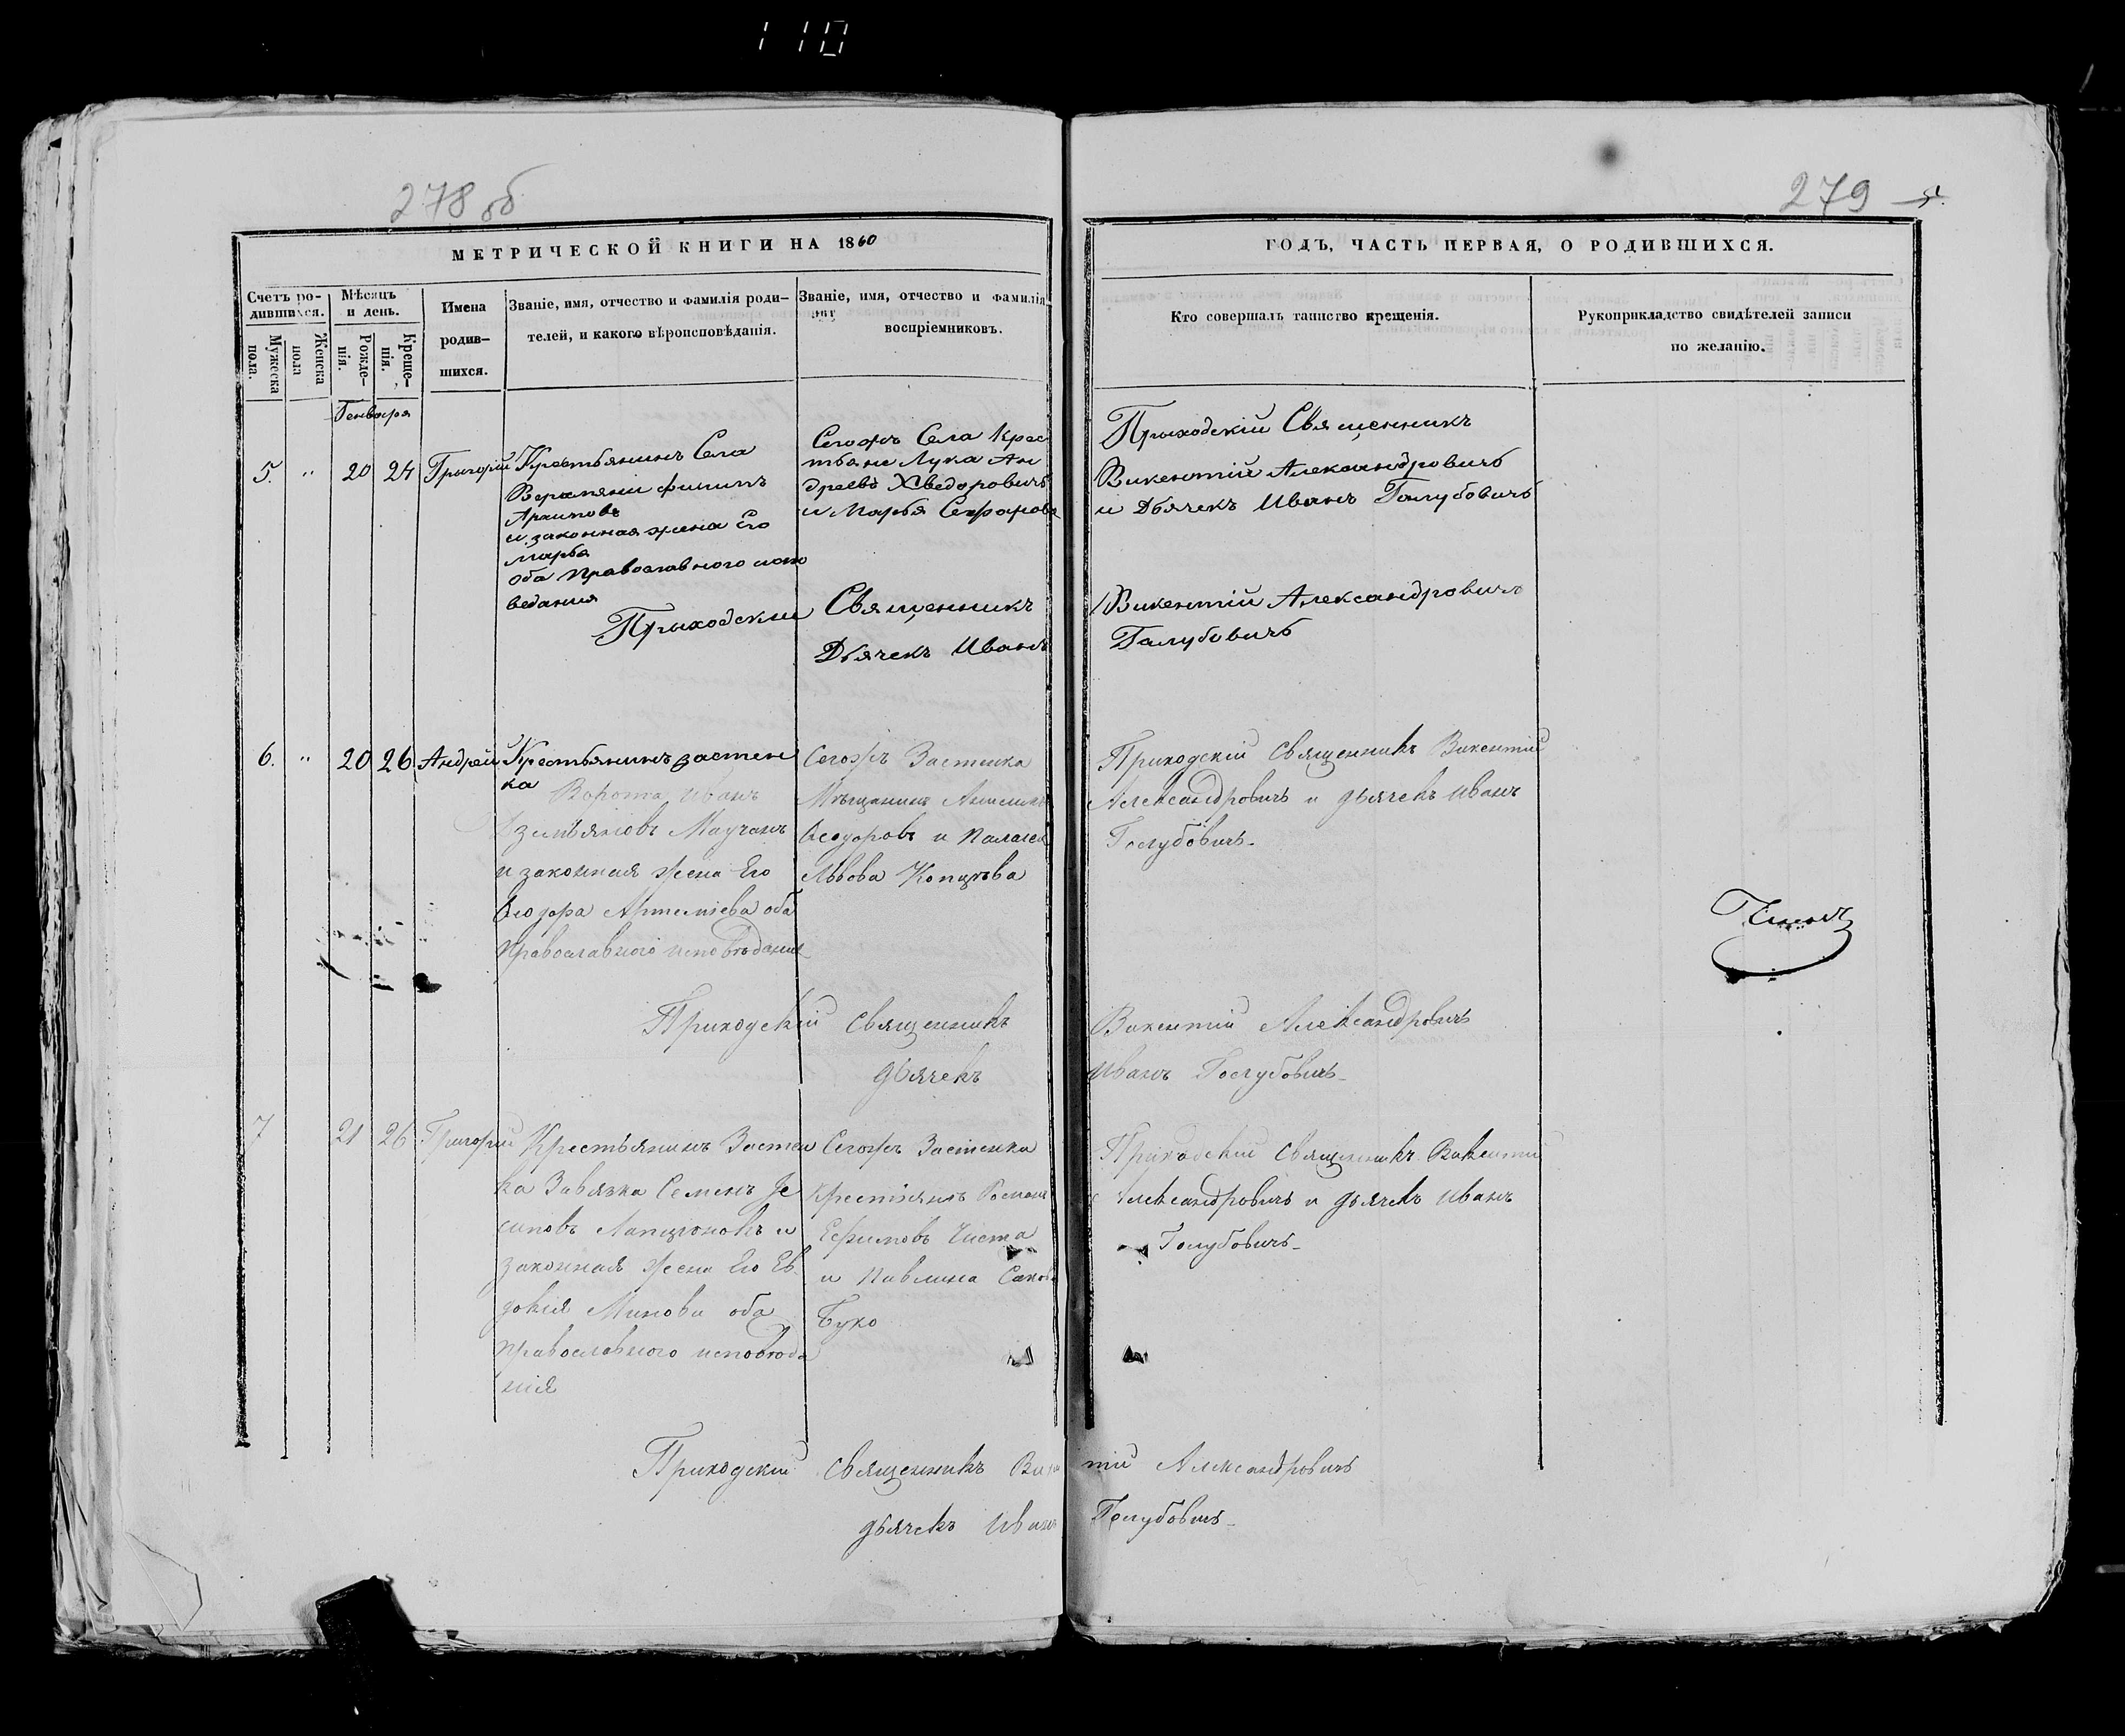 110
278 об
279
МЕТРИЧЕСКОЙ КНИГИ НА 1860
ГОДЪ, ЧАСТЬ ПЕРВАЯ, О РОДИВШИХСЯ.
Счетъ ро-
дившихся.
Мужеска
пола.
Женска
пола
Мѣсяцъ
и день.
Рожде-
нія.
Креще-
нія.
Имена
родив-
шихся.
Званіе, имя, отчество и фамилія роди-
телей, и какого вѣроисповѣданія.
Званіе, имя, отчество и фамилія
воспріемниковъ.
Кто совершалъ таинство крещенія.
Рукоприкладство свидѣтелей записи
по желанію.
Генваря
5. " 20 24 Григорій
Крестьянинъ Села
Филипъ
Архиповъ
и законная жена Его
Марья
оба православнаго испо
ведания
Сегожъ Села Крес
тьяне Лука Ан
дреевъ Хведоровичъ
и Марья
Приходскій Священникъ
Викентій Александровичъ
и Дьячекъ Иванъ Галубовичъ
Приходский Священникъ Викентій Александровичъ
Дьячекъ Иванъ Галубовичъ
6. " 20 26 Андрей
Крестьянинъ застен
ка Ворота Иванъ
и законная жена Его
Ѳеодора Артемiева оба
православнаго исповѣдания
Сегожъ Застенка
Мѣщанинъ
Ѳеодоровъ и
Львова
Приходскій Священникъ Викентій
Александровичъ и дьячекъ Иванъ
Голубовичъ
Приходскій Священникъ Викентій Александровичъ
дьячекъ Иванъ Голубовичъ
7 21 26 Григорій
Крестьянинъ Застен
ка Завязка Семенъ Іе
законная жена Его Ев
докія Минова оба
православного исповѣда
нія
Сегожъ Застенка
Романъ
Ефимовъ Чиста
и Павлина
Буко
Приходскій Священникъ Викентій
Александровичъ и дьячекъ Иванъ
Голубовичъ
Приходский Священникъ Викентій Александровичъ
дьячекъ Иванъ Голубовичъ